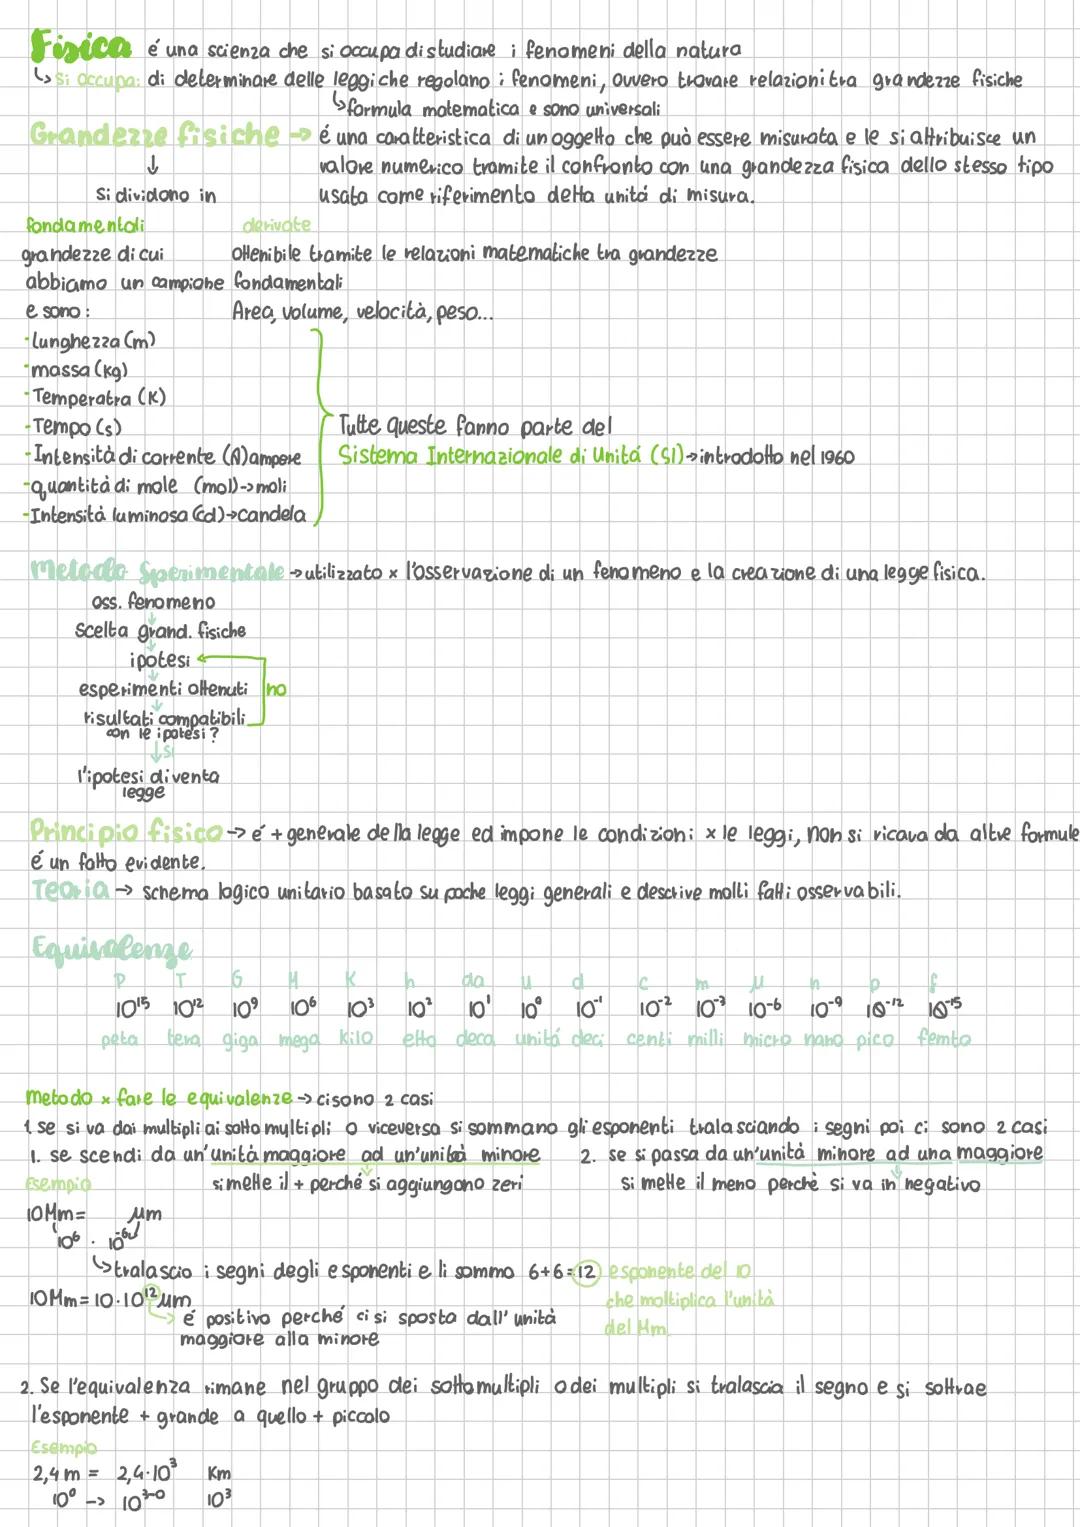 Fisica é una scienza che si occupa di studiare i fenomeni della natura
↳ si occupa: di determinare delle leggi che regolano i fenomeni, ovvero trovare relazioni tra grandezze fisiche
↳ formula matematica e sono universali
Grandezze fisiche → é una caratteristica di un oggetto che può essere misurata e le si attribuisce un
↓ valore numerico tramite il confronto con una grandezza fisica dello stesso tipo
Si dividono in usata come riferimento detta unitá di misura.
fondamentali derivate
grandezze di cui ottenibile tramite le relazioni matematiche tra grandezze
abbiamo un campione fondamentali
e sono: Area, volume, velocità, peso...
-lunghezza (m)
-massa (kg)
-Temperatra (K)
-Tempo (s) Tutte queste fanno parte del
-Intensità di corrente (A) ampere Sistema Internazionale di Unitá (SI) → introdotto nel 1960
-quantità di mole (mol) -> moli
-Intensità luminosa (cd) → Candela
Metodo Sperimentale → utilizzato x l'osservazione di un fenomeno e la creazione di una legge fisica.
oss. fenomeno
↓
scelta grand. fisiche
↓
ipotesi
↓
esperimenti ottenuti no
↓
risultati compatibili
con le ipotesi?
↓ si
l'ipotesi diventa
legge
Principio fisico → é + generale della legge ed impone le condizioni x le leggi, non si ricava da altre formule
é un fatto evidente.
Teoria → schema logico unitario basato su poche leggi generali e descrive molti fatti osservabili.
Equivalenze
P T G M K h da u d c m μ n p f
10¹⁵ 10¹² 10⁹ 10⁶ 10³ 10² 10¹ 10⁰ 10⁻¹ 10⁻² 10⁻³ 10⁻⁶ 10⁻⁹ 10⁻¹² 10⁻¹⁵
peta tera giga mega kilo etto deca unitá deci centi milli micro nano pico femto
metodo x fare le equivalenze → ci sono 2 casi
1. se si va dai multipli ai sotto multipli o viceversa si sommano gli esponenti tralasciando i segni poi ci sono 2 casi
1. se scendi da un'unità maggiore ad un'unità minore 2. se si passa da un'unità minore ad una maggiore
Esempio si mette il + perché si aggiungono zeri si mette il meno perchè si va in negativo
10Mm= μm
10⁶ . 10⁻⁶
↳ tralascio i segni degli esponenti e li sommo 6+6=12 esponente del 10
10Mm=10·10¹² μm che moltiplica l'unità
→ é positivo perché ci si sposta dall'unità del Mm.
maggiore alla minore
2. Se l'equivalenza rimane nel gruppo dei sottomultipli o dei multipli si tralascia il segno e si sottrae
l'esponente + grande a quello + piccolo
Esempio
2,4 m = 2,4·10³ Km
10⁰ -> 10³⁻⁰ 10³